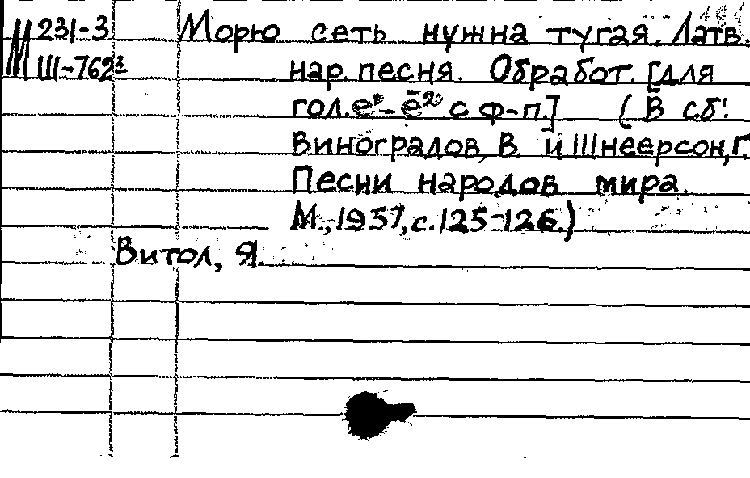 М 231-3 Морю сеть нужна тугая. Латв.
Ш-762² нар. песня. Обработ. [для
гол. e¹-e² с ф-п.] (В сб:
Виноградов, В. и Шнеерсон, Г.
Песни народов мира.
М., 1957, с. 125-126.)
Витол, Я.